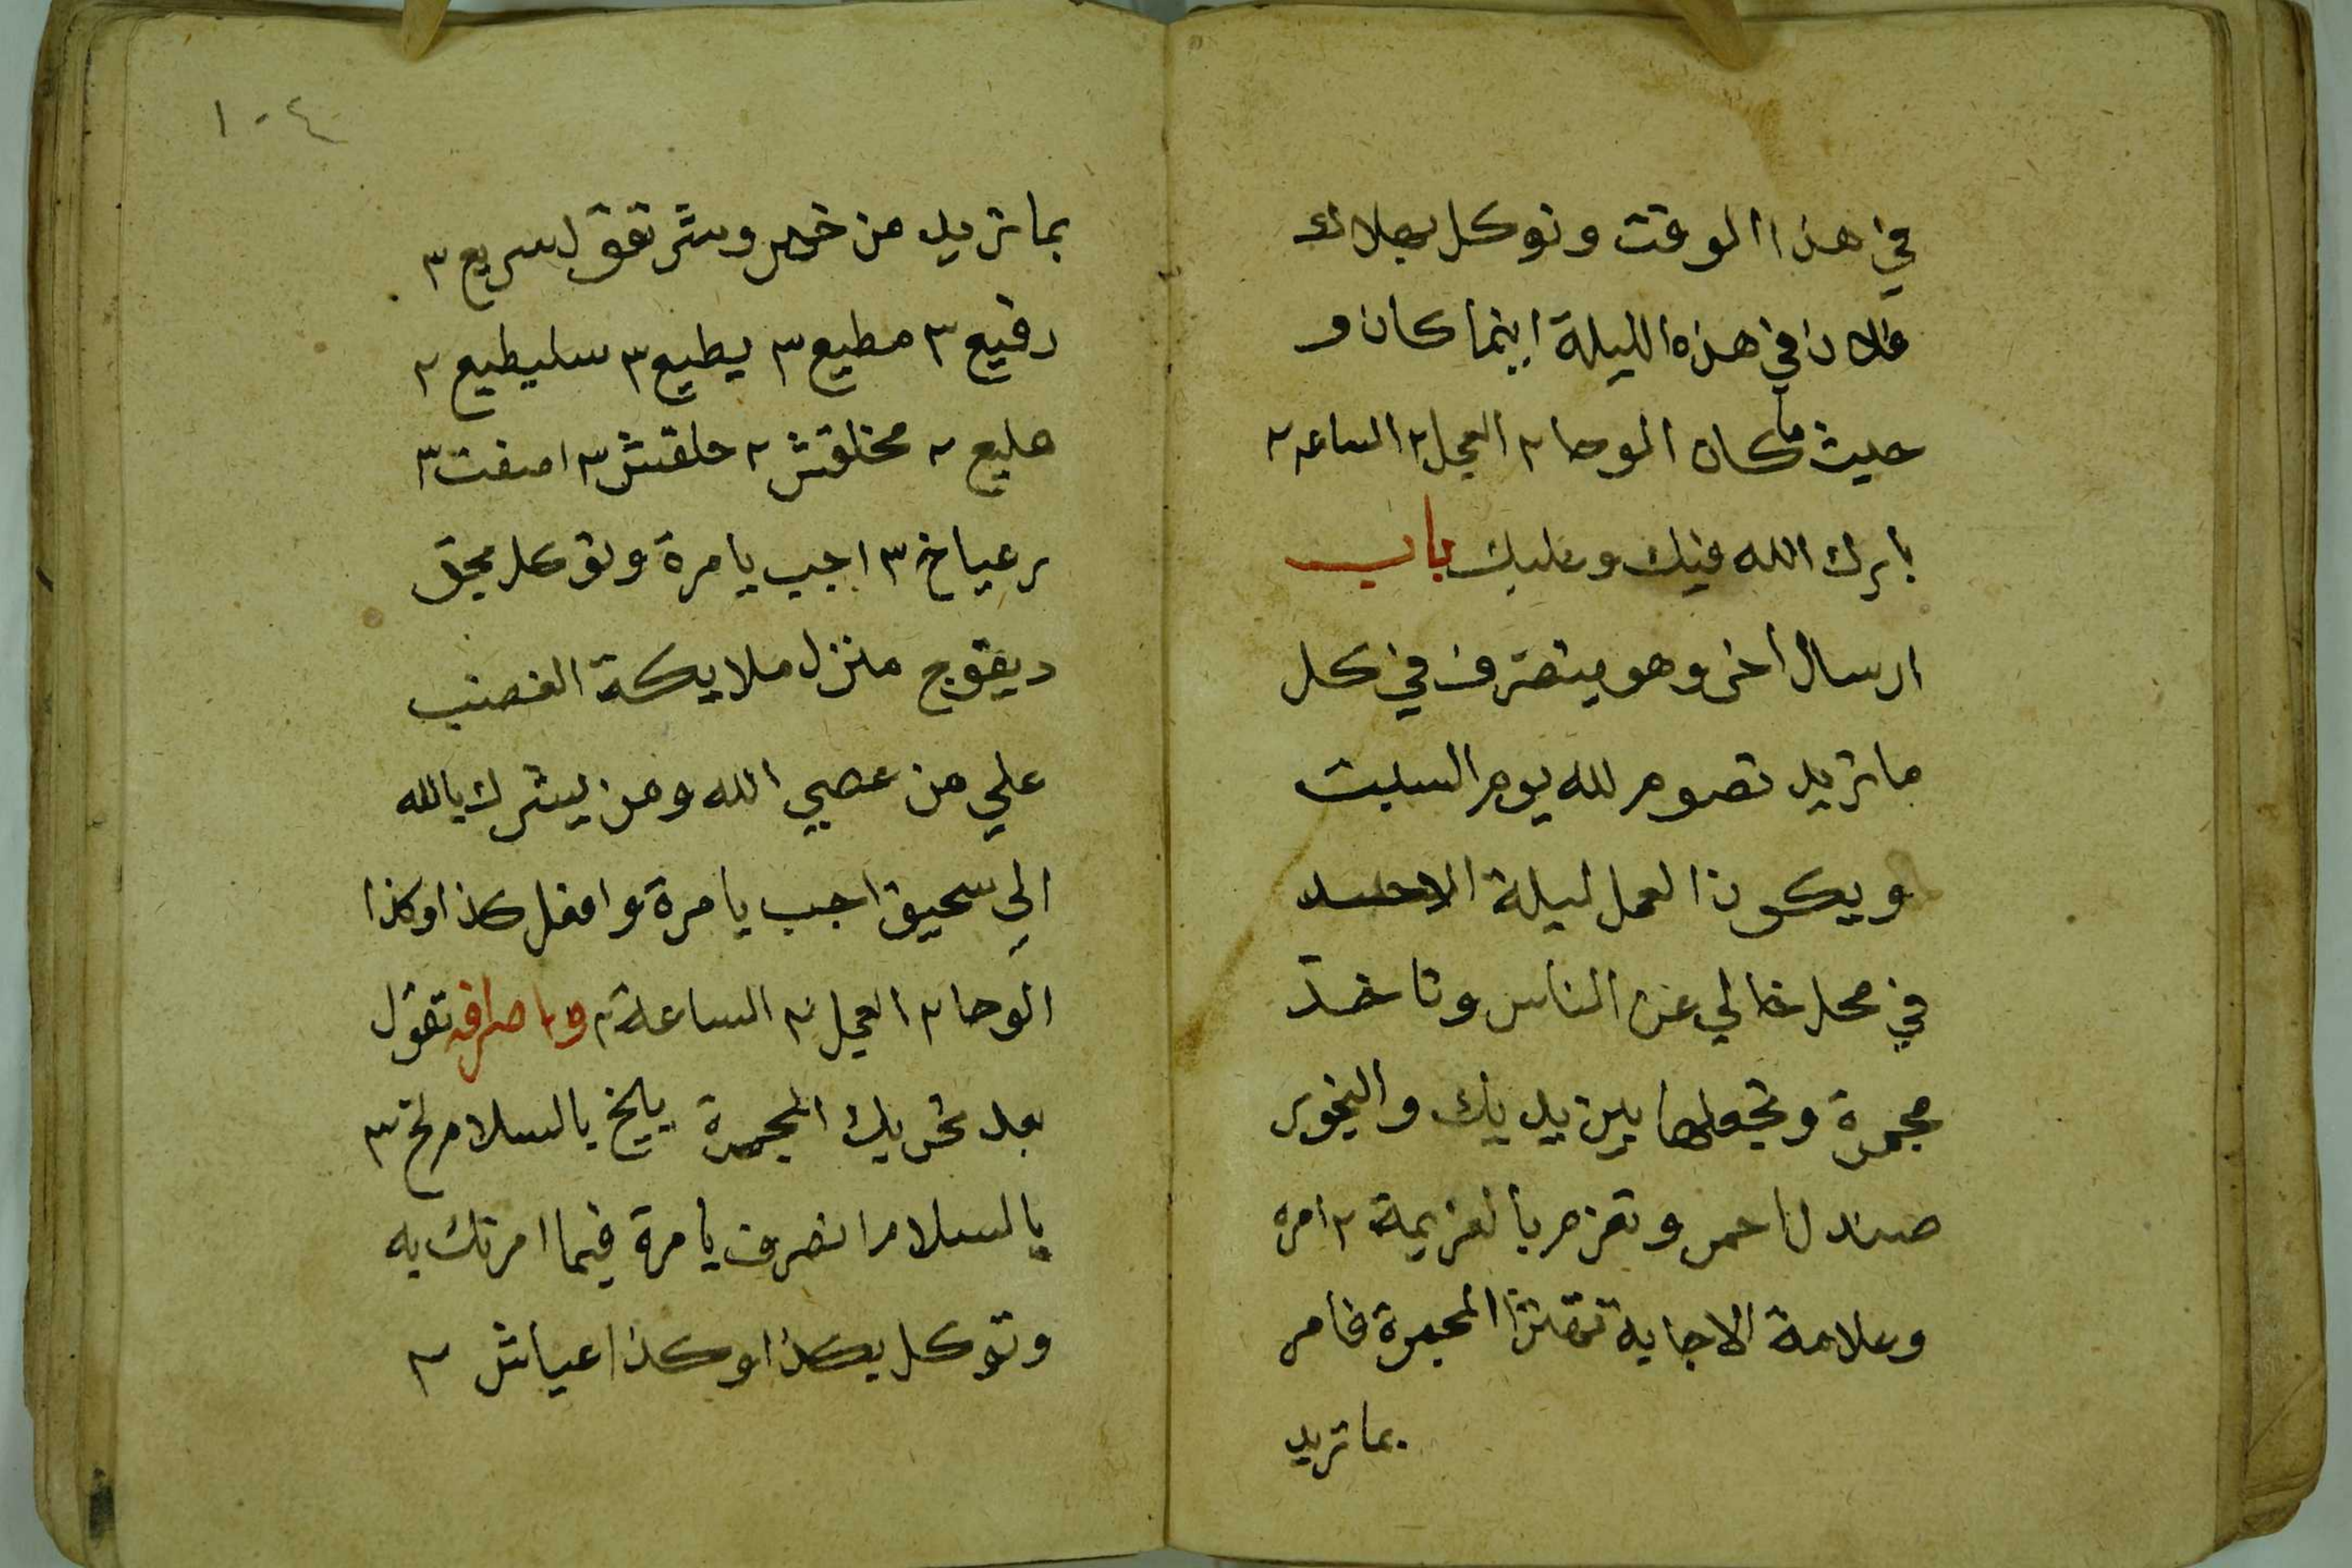 في هذا الوقت وتوكل بهلاك
فلان في هذه الليلة اينما كان و
حيث ما كان الوحا ٢ العجل ٢ الساعه ٢
بارك الله فيك وعليك باب
ارسال اخر وهو يتصرف في كل
ما تريد تصوم لله يوم السبت
ويكون العمل ليلة الاحد
في محل خالي عن الناس وتاخذ
مجمرة وتجعلها بين يديك والبخور
صندل احمر وتعزم بالعزيمة ٢ امره
وعلامة الاجابة تهتز المجمرة فامر
بما تريد
١٠٤
بما تريد من خير وشر تقول سريع ٣
رفيع ٣ مطيع ٣ يطيع ٣ سليطيع ٢
هليع ٢ مخلقش ٢ حلقش ٣ اصفت ٣
برعياخ ٣ اجب يا مرة وتوكل بحق
ديقوج منزل ملايكة الغضب
علي من عصي الله ومن يشرك بالله
الي سحيق اجب يا مرة وافعل كذا وكذا
الوحا ٢ العجل ٢ الساعة ٢ وباصرافه تقول
بعد تحريك المجمرة يايخ بالسلام لخ ٣
بالسلام انصرف يا مرة فيما امرتك به
وتوكل بكذا وكذا عياش ٢